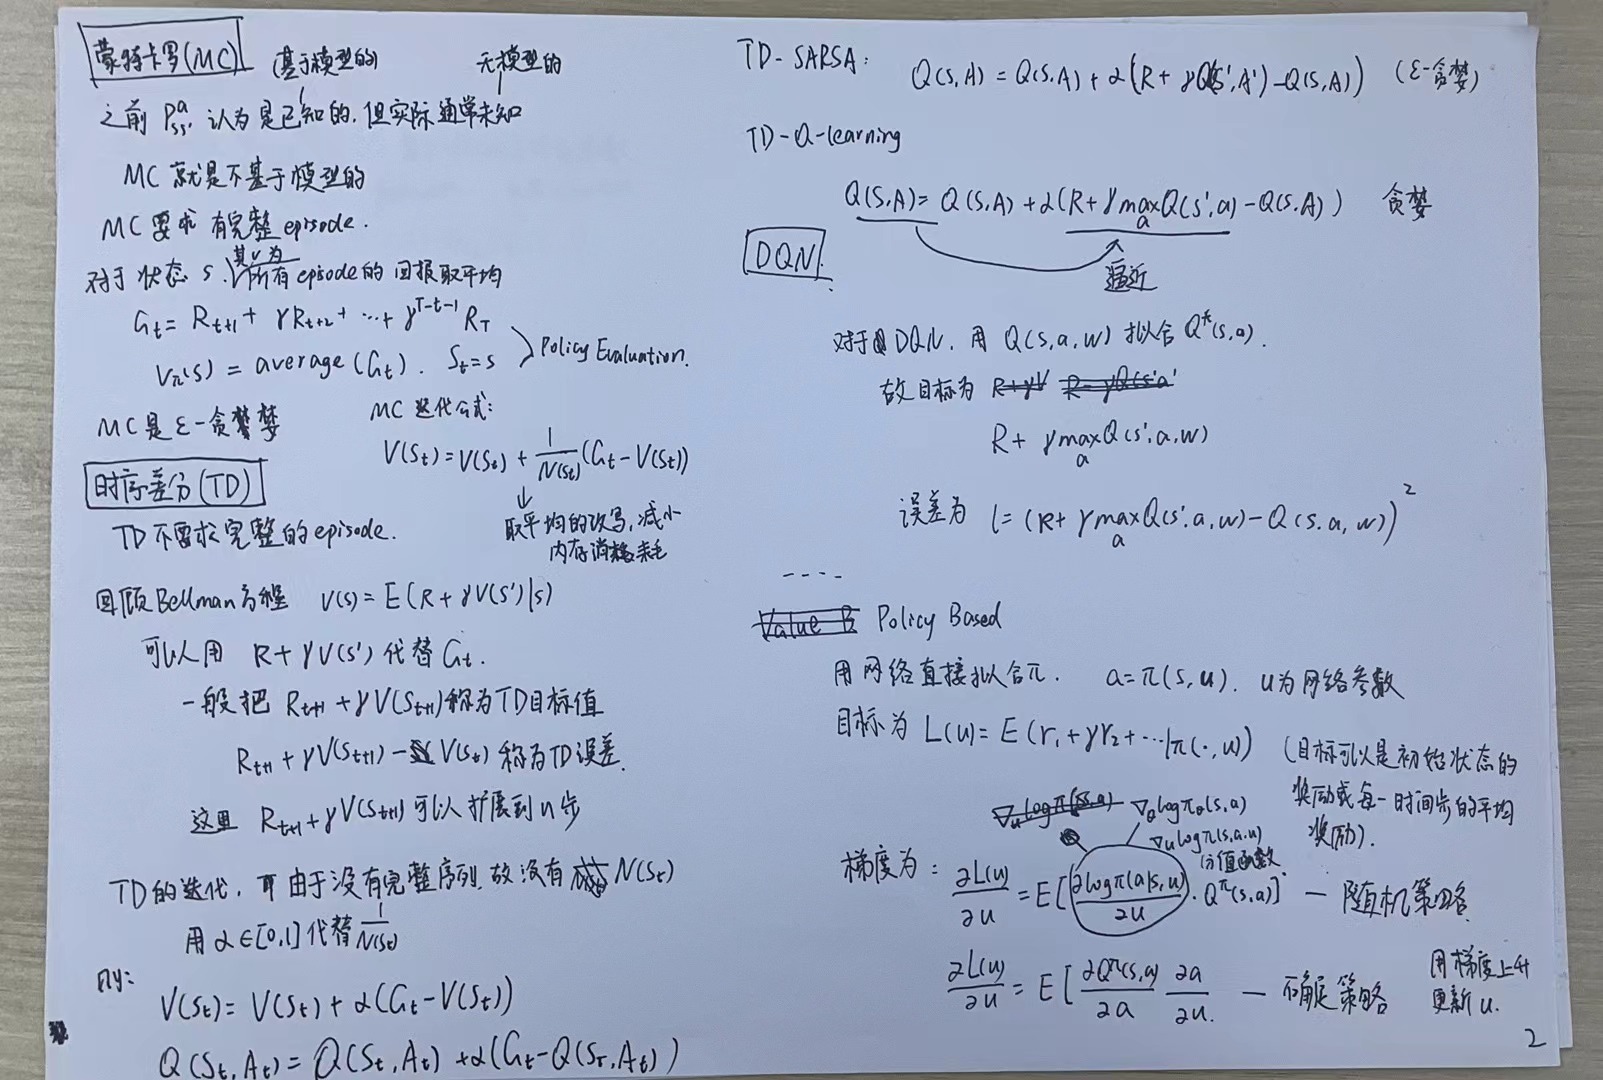 蒙特卡罗(MC) (基于模型的) 无模型的
之前 Pᵃss' 认为是已知的, 但实际通常未知
MC 就是不基于模型的
MC 要求 有完整 episode.
对于状态 S, 其V为 所有 episode 的 回报取平均
Gt = Rt+1 + γRt+2 + ··· + γ^(T-t-1) RT
Vπ(s) = average(Gt). St=s
Policy Evaluation.
MC是 ε-贪婪
MC 迭代公式:
V(St) = V(St) + 1/N(St) (Gt - V(St))
↓
取平均的改写, 减小
内存消耗
时序差分(TD)
TD 不要求完整的 episode.
回顾Bellman方程 V(s) = E(R + γV(s')|s)
可以用 R + γV(s') 代替 Gt.
一般把 Rt+1 + γV(St+1) 称为TD目标值
Rt+1 + γV(St+1) - V(St) 称为TD误差.
这里 Rt+1 + γV(St+1) 可以扩展到 n 步
TD的迭代, 由于没有完整序列, 故没有 N(St)
用 α∈[0,1] 代替 1/N(St)
则:
V(St) = V(St) + α(Gt - V(St))
Q(St, At) = Q(St, At) + α(Gt - Q(St, At))
TD-SARSA: Q(S,A) = Q(S,A) + α(R + γQ(S',A') - Q(S,A)) (ε-贪婪)
TD-Q-learning
Q(S,A) = Q(S,A) + α(R + γ max_a Q(S',a) - Q(S,A)) 贪婪
逼近
DQN
对于 DQN, 用 Q(s,a,w) 拟合 Q*(s,a).
故目标为
R + γ max_a Q(s',a,w)
误差为 l = (R + γ max_a Q(s',a,w) - Q(s,a,w))²
----
Value B Policy Based
用网络直接拟合π. a = π(s,u). u为网络参数
目标为 L(u) = E(r₁ + γr₂ + ···|π(·,u)) (目标可以是初始状态的
奖励或每一时间步的平均
奖励).
∇u logπ(s,a) ∇θ logπθ(s,a)
∇u logπ(s,a,u)
分值函数
梯度为: ∂L(u)/∂u = E[∂logπ(a|s,u)/∂u · Qπ(s,a)] — 随机策略
∂L(u)/∂u = E[∂Qπ(s,a)/∂a ∂a/∂u. — 确定策略
用梯度上升
更新 u.
2